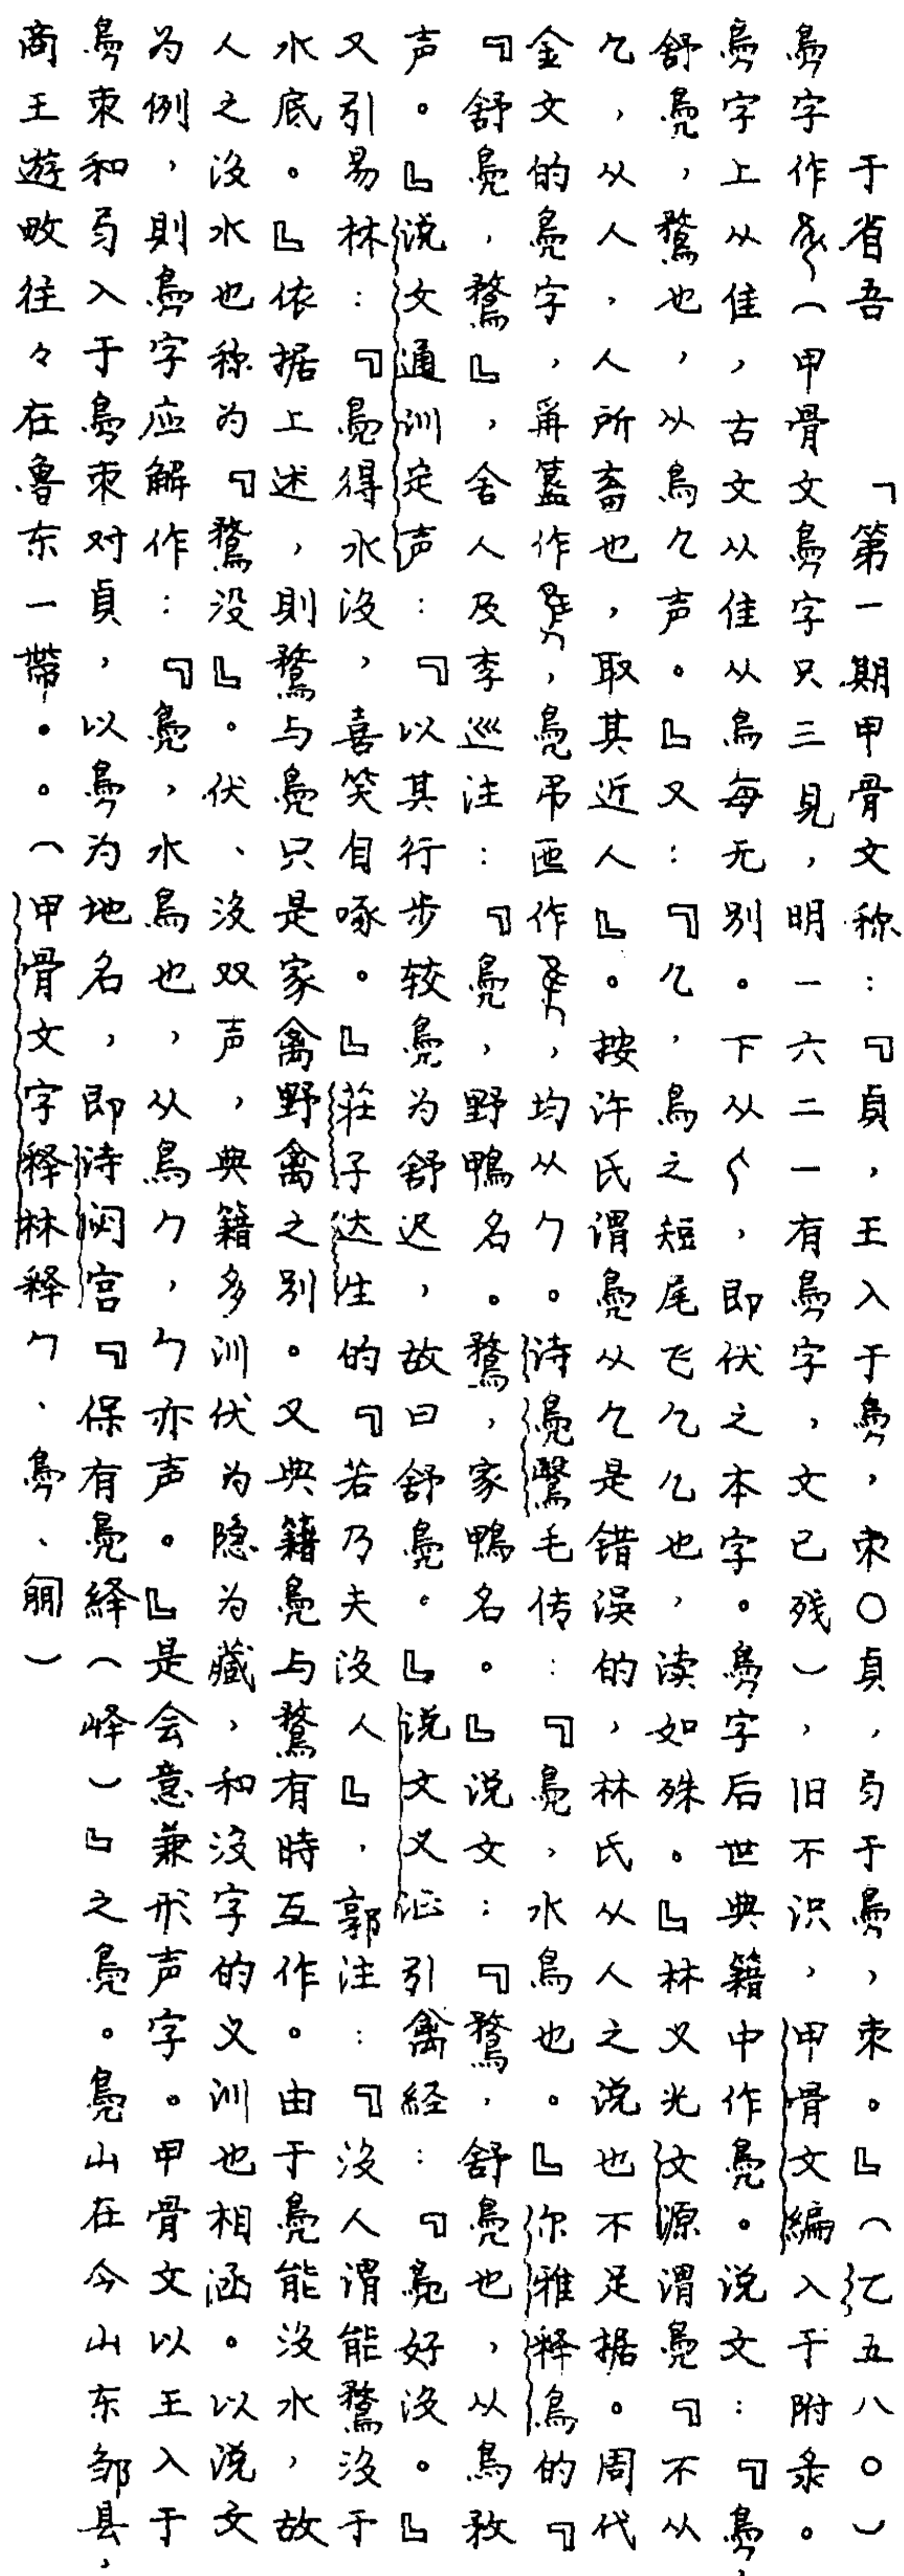 于省吾　「第一期甲骨文称：『貞，王入于鳧，朿〇貞，勹于鳧，朿。』（乙五八〇）
鳧字作（甲骨文鳧字只三見，明一六二一有鳧字，文已残），旧不识，甲骨文編入于附彔。
鳧字上从隹，古文从隹从鳥每无别。下从，即伏之本字。鳧字后世典籍中作鳧。说文：『鳧，
舒鳧，鶩也，从鳥几声。』又：『几，鳥之短尾飞几几也，读如殊。』林义光文源谓鳧『不从
几，从人，人所畜也，取其近人』。按许氏谓鳧从几是错误的，林氏从人之说也不足据。周代
金文的鳧字，爯簋作，鳧弔匜作，均从勹。诗鳧鷖毛传：『鳧，水鳥也。』尔雅释鳥的『
『舒鳧，鶩』，舍人及李巡注：『鳧，野鴨名。鶩，家鴨名。』说文：『鶩，舒鳧也，从鳥敄
声。』说文通训定声：『以其行步较鳧为舒迟，故曰舒鳧。』说文义证引禽経：『鳧好没。』
又引易林：『鳧得水没，喜笑自啄。』莊子达生的『若乃夫没人』，郭注：『没人谓能鶩没于
水底。』依据上述，則鶩与鳧只是家禽野禽之别。又典籍鳧与鶩有時互作。由于鳧能没水，故
人之没水也称为『鶩没』。伏、没双声，典籍多训伏为隐为藏，和没字的义训也相涵。以说文
为例，則鳧字应解作：『鳧，水鳥也，从鳥勹，勹亦声。』是会意兼形声字。甲骨文以王入于
鳧朿和勹入于鳧朿对貞，以鳧为地名，即诗閟宫『保有鳧绎（峄）』之鳧。鳧山在今山东邹县，
商王遊畋往々在魯东一帶。。（甲骨文字释林释勹、鳧、）